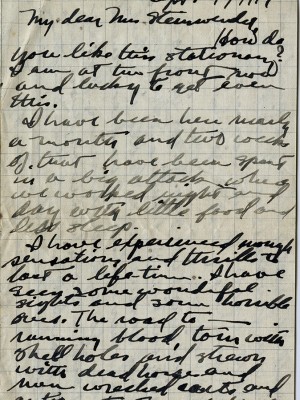 My dear Mrs. Steinwender,
How do
you like this stationary?
I am at the front now
and lucky to get even
this.
I have been here nearly
a month and two weeks
of that have been spent
in a big attack when
we worked night and
day with little food and
less sleep.
I have experienced enough
sensations and thrills to
last a lifetime. I have
seen some wonderful
sights and some horrible
ones. The road to ——
running blood, torn with
shell holes and strewn
with dead horses and
men wrecked carts, and